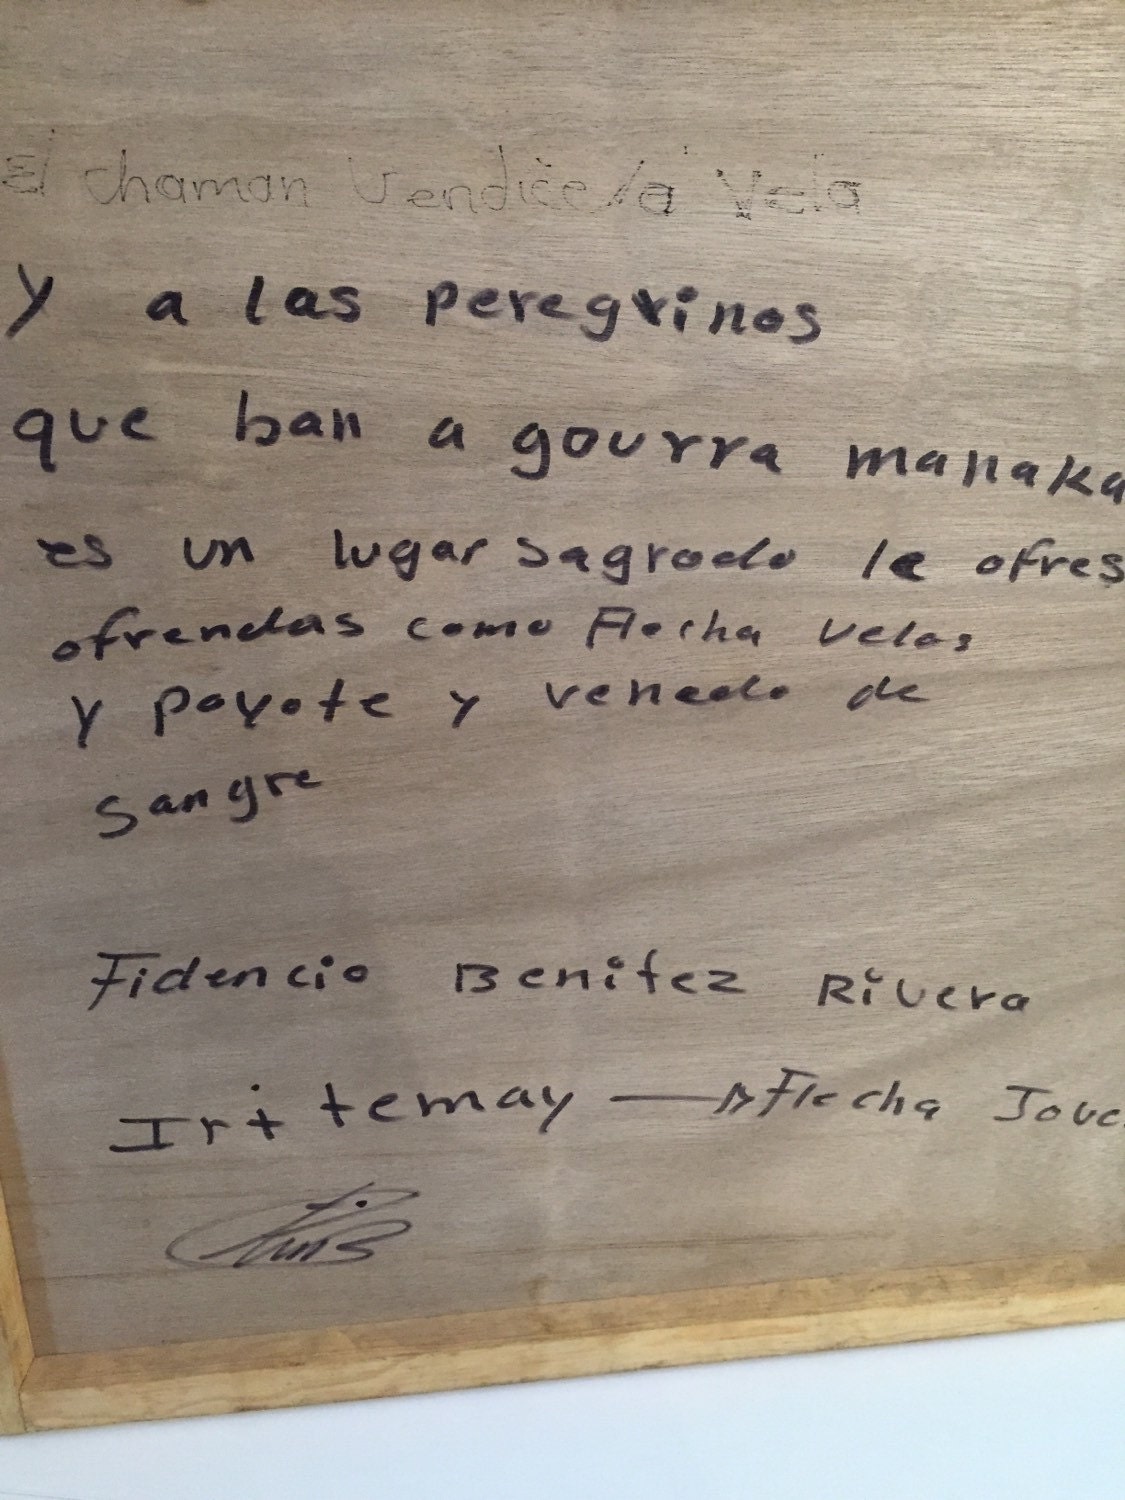 El chaman Vendice la Vela
y a las peregrinos
que ban a gourra manaka
es un lugar sagrado le ofres
ofrendas como Flecha velas
y poyote y venado de
sangre
Fidencio Benitez Rivera
Iri temay → Flecha Jove